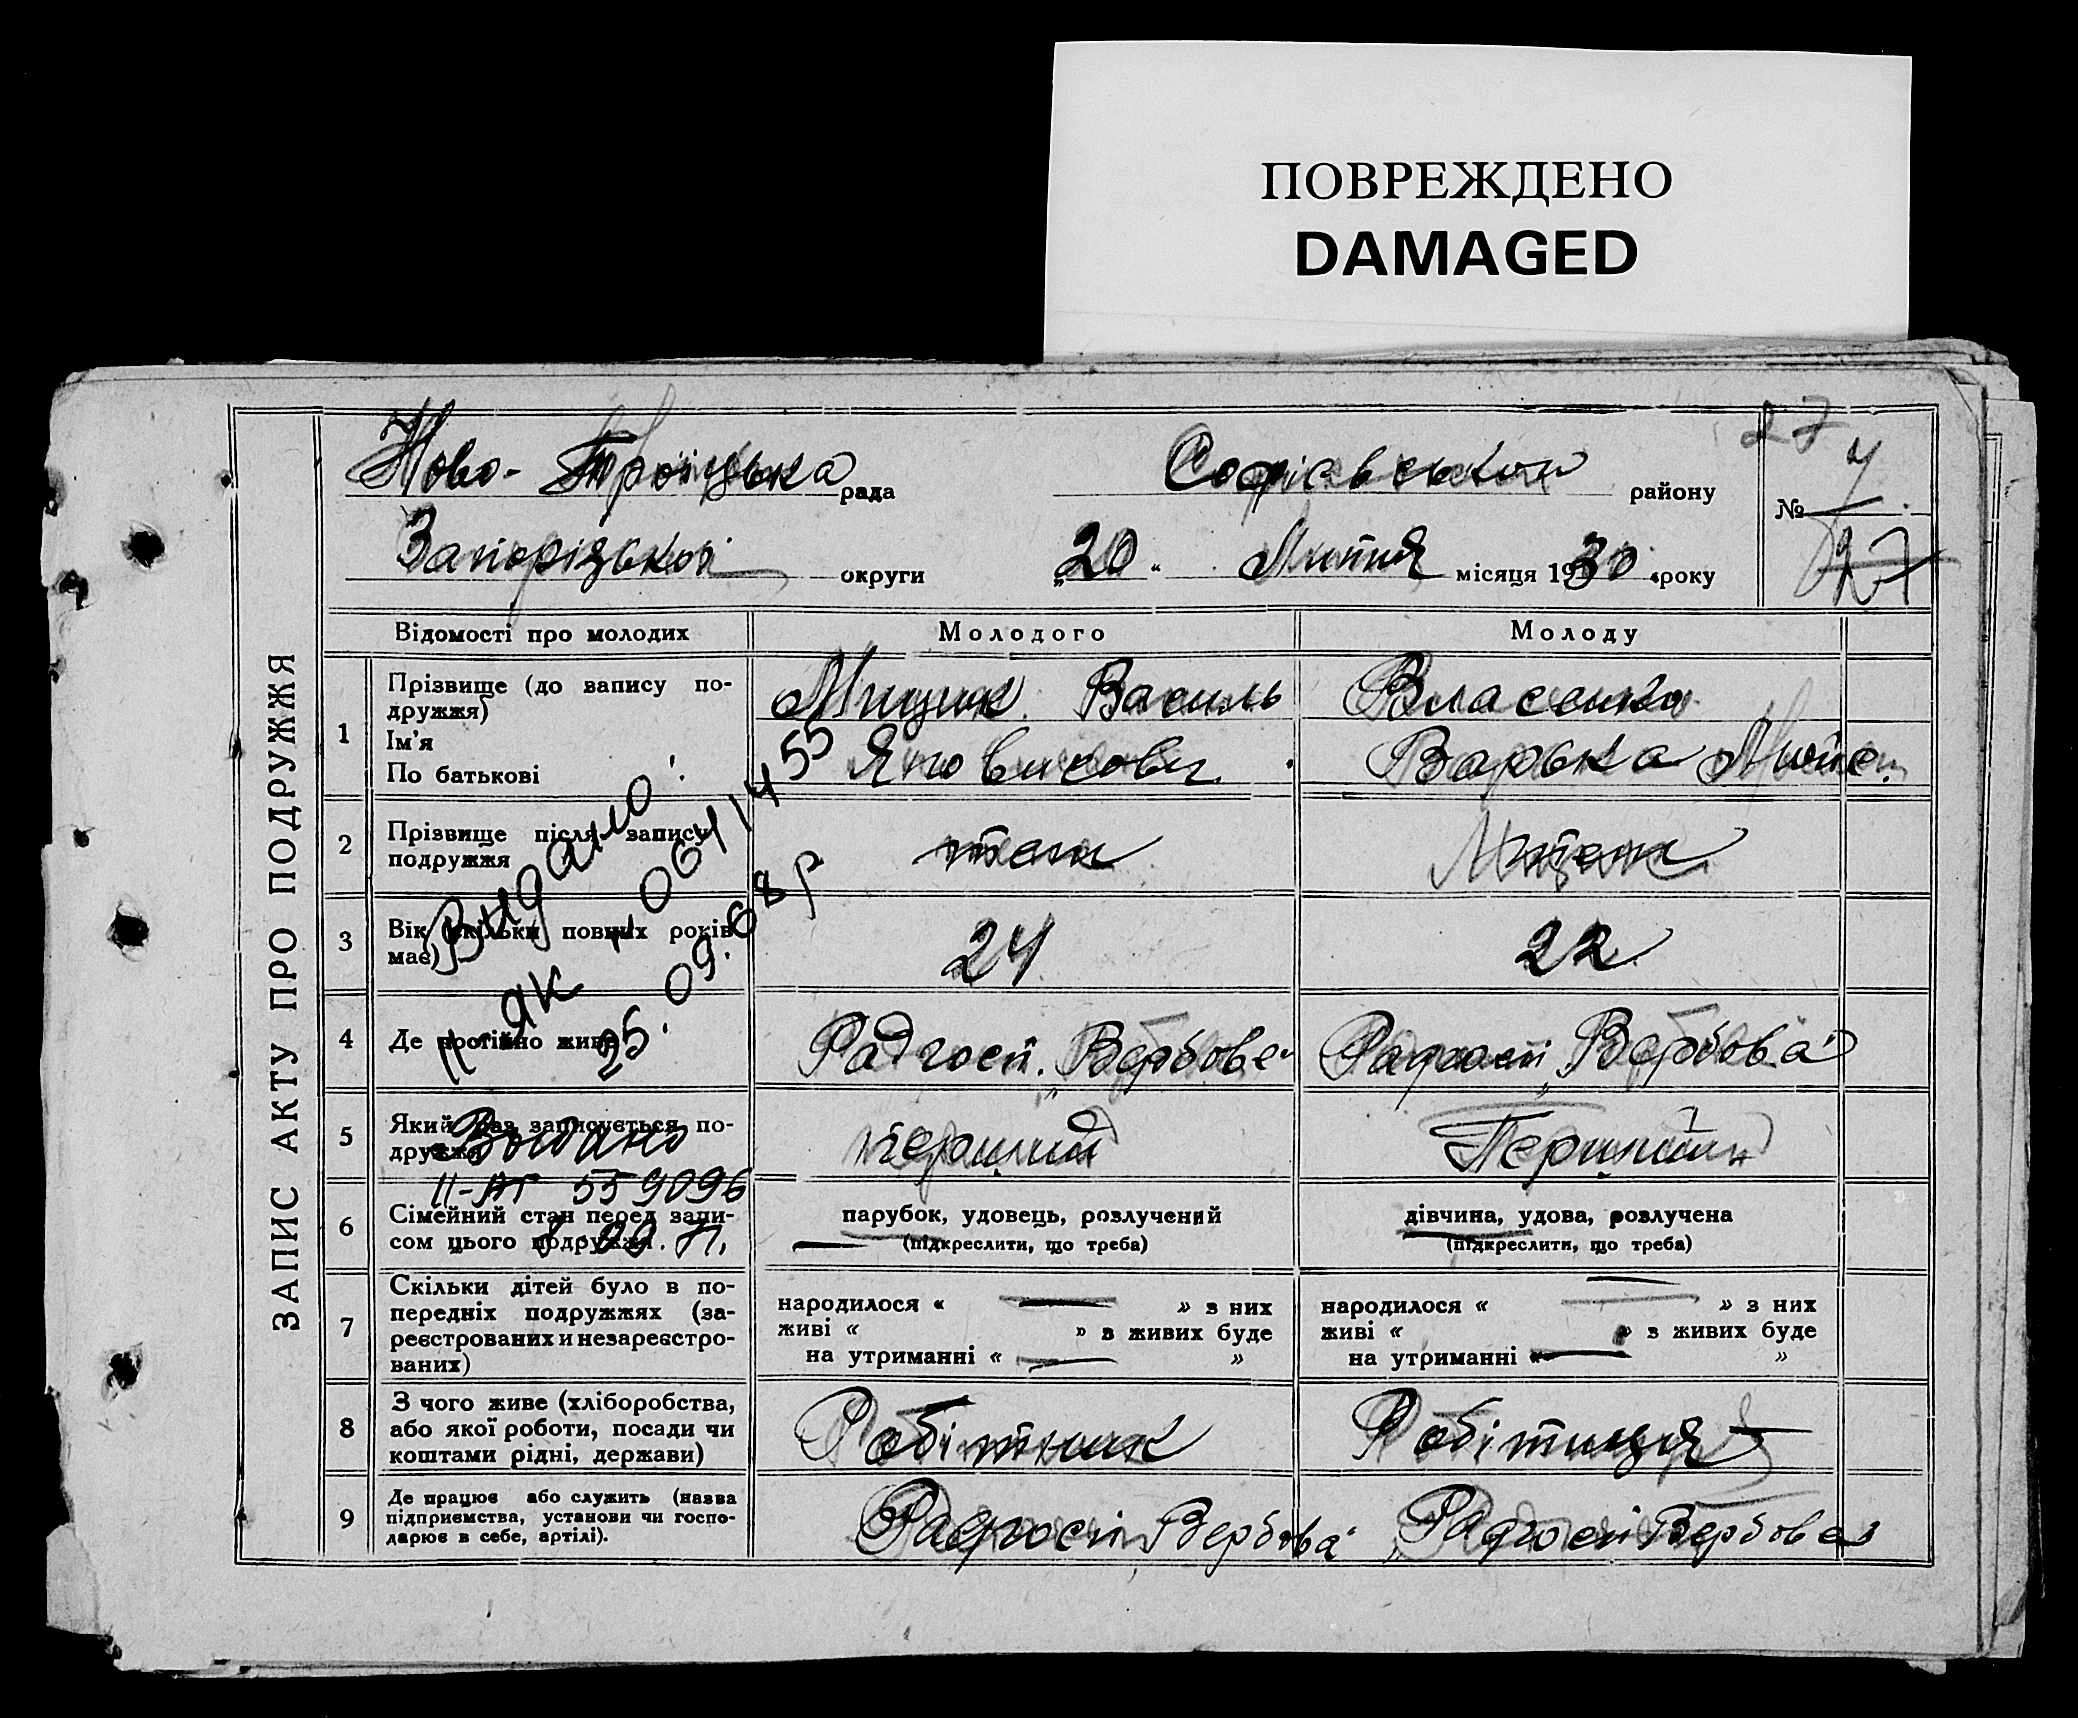 ПОВРЕЖДЕНО
DAMAGED
27
Ново-Троїцька рада Софієвського району № 7
27
Запорізької округи „20“ Лютня місяця 1930 року
ЗАПИС АКТУ ПРО ПОДРУЖЖЯ
Відомості про молодих Молодого Молоду
1 Прізвище (до запису подружжя) Мицик Василь Власенко
Ім'я
По батькові Варька
2 Прізвище після запису подружжя
3 Вік (скільки повних років має) 24 22
4 Де постійно живе Радгосп „Вербове“ Радгосп „Вербова“
5 Який раз записується подружжя Перший Перший
6 Сімейний стан перед записом цього подружжя. парубок, удовець, розлучений дівчина, удова, розлучена
(підкреслити, що треба) (підкреслити, що треба)
7 Скільки дітей було в попередніх подружжях (зареєстрованих и незареєстрованих)
народилося « » з них народилося « » з них
живі « » з живих буде живі « » з живих буде
на утриманні « » на утриманні « »
8 З чого живе (хліборобства, або якої роботи, посади чи коштами рідні, держави) Робітник Робітниця
9 Де працює або служить (назва підприємства, установи чи господарює в себе, артілі). Радгосп „Вербова“ Радгосп Вербовез
Видано:
II-ЯК № 0641455
25.09.68 р
Выдано
II-АГ 559096